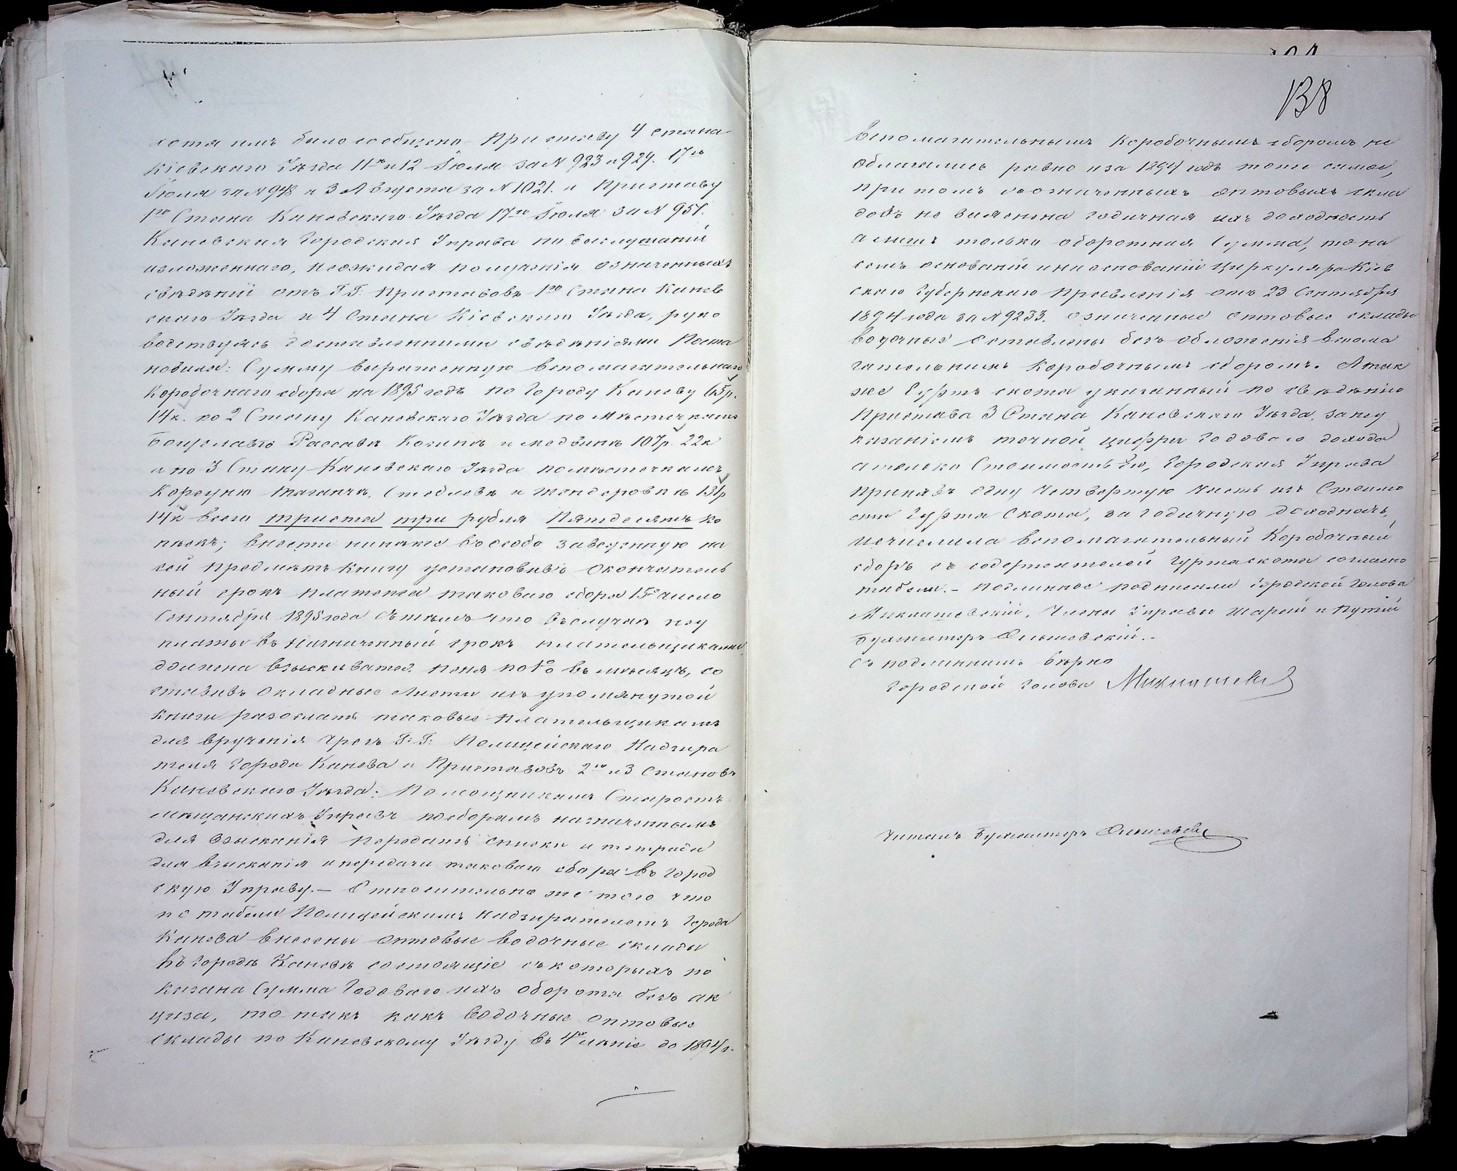 хотя имъ было сообщено Приставу 4 стана
Кіевскаго Уѣзда 11го и 12 Іюля за N 923 и 924. 17го
Іюля за N 948 и 3 Августа за N 1021. и Приставу
1го Стана Каневскаго Уѣзда 17го Іюля за N 951.
Каневская Городская Управа по выслушаній
изложеннаго, неожидая полученія означенныхъ
свѣдѣній отъ Г.Г. Приставовъ 1го Стана Канев
скаго Уѣзда и 4 Стана Кіевскаго Уѣзда, руко
водствуясь доставленными свѣдѣніями Поста
новила: Сумму выраженную вспомагательнаго
Коробочнаго сбора на 1895 годъ по Городу Каневу 65р.
14к. по 2 Стану Каневскаго Уѣзда по Мѣстечкамъ
Богуславѣ Россавѣ Козинѣ и Медвинѣ 107р. 22к
и по 3 Стану Каневскаго Уѣзда помѣстечкамъ
Корсуню Таганчѣ, Стеблевѣ и Шендеровкѣ 131р
14к всего триста три рубля пятдесятъ ко
пѣекъ; внести въ особо заведенную на
сей предметъ книгу установивъ окончатель
ный срокъ платежа таковаго сбора 15е число
Сентября 1895 года съ тѣмъ что въслучаѣ неу
платы въ назначенный срокъ плательщиками
должна взыскиватся пеня по 1% въ мѣсяцъ, со
ставивъ окладные листы изъ упомянутой
книги разослать таковые плательщикамъ
для врученія чрезъ Г.Г. Полицейскаго Надзира
теля Города Канева и Приставовъ 2го и 3 Становъ
Каневскаго Уѣзда; Помощникамъ Старостъ
мѣщанскихъ Управъ посборамъ назначеннымъ
для взысканія передать списки и тетради
для взысканія и передачи таковаго сбора въ Город
скую Управу.— Относительно же того что
по табели Полицейскимъ Надзирателемъ Города
Канева внесены оптовые водочные склады
въ городѣ Каневѣ состоящіе съ которыхъ по
казана сумма Годоваго ихъ оборота безъ ак
циза, то такъ какъ водочные оптовые
склады по Каневскому Уѣзду въ 4хъ лѣтіе до 1894 г.
138
Вспомагательнымъ Коробочнымъ сборомъ не
облагались равно и за 1894 годъ тоже самое,
при томъ съ означенныхъ оптовыхъ скла
довъ не выяснена годичная ихъ доходность
а лишь только оборотная Сумма, то на
семъ основаній и на основаній Циркуляра Кіев
скаго Губернскаго Правленія отъ 23 Сентября
1894 года за N 9233. означенные оптовые склады
водочные оставлены безъ обложенія вспома
гательнымъ Коробочнымъ сборомъ. А так
же Гуртъ скота указанный по свѣдѣнію
Пристава 3 Стана Каневскаго Уѣзда, за неу
казаніемъ точной цифры годоваго дохода
а только Стоимость его, Городская Управа
принявъ одну четвертую часть изъ Стоимо
сти Гурта Скота, за годичную доходность,
исчислила вспомагательный Коробочный
сборъ съ содержателей Гурта скота согласно
табели.— Подлинное подписали Городской Голова
Михнашевскій, Члены Управы Шарай и Путій
Бухгалтеръ Ольшовскій.—
Съ подлиннымъ вѣрно
Городской Голова
Читалъ Бухгалтеръ